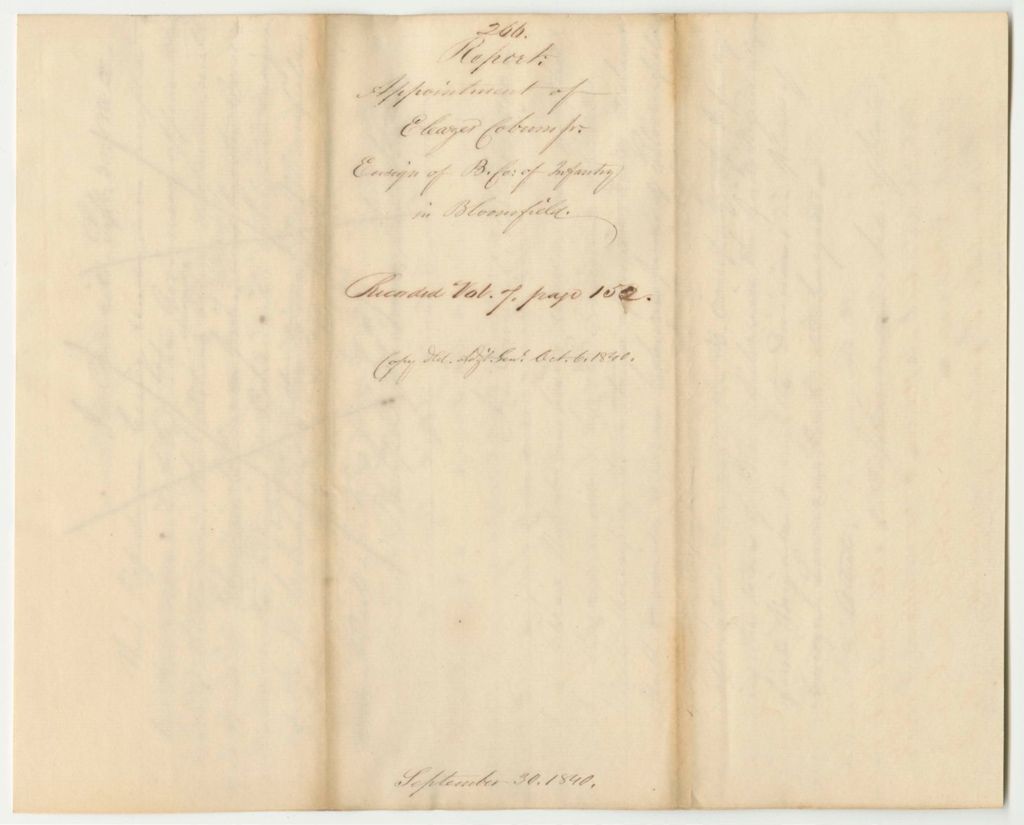 266.
Report:
Appointment of
Eleazer Coburn jr.
Ensign of B. Co: of Infantry
in Bloomfield.
Recorded Vol. 7. page 152.
Copy Dld. Adjt. Genl. Oct. 6. 1840.
September 30. 1840.